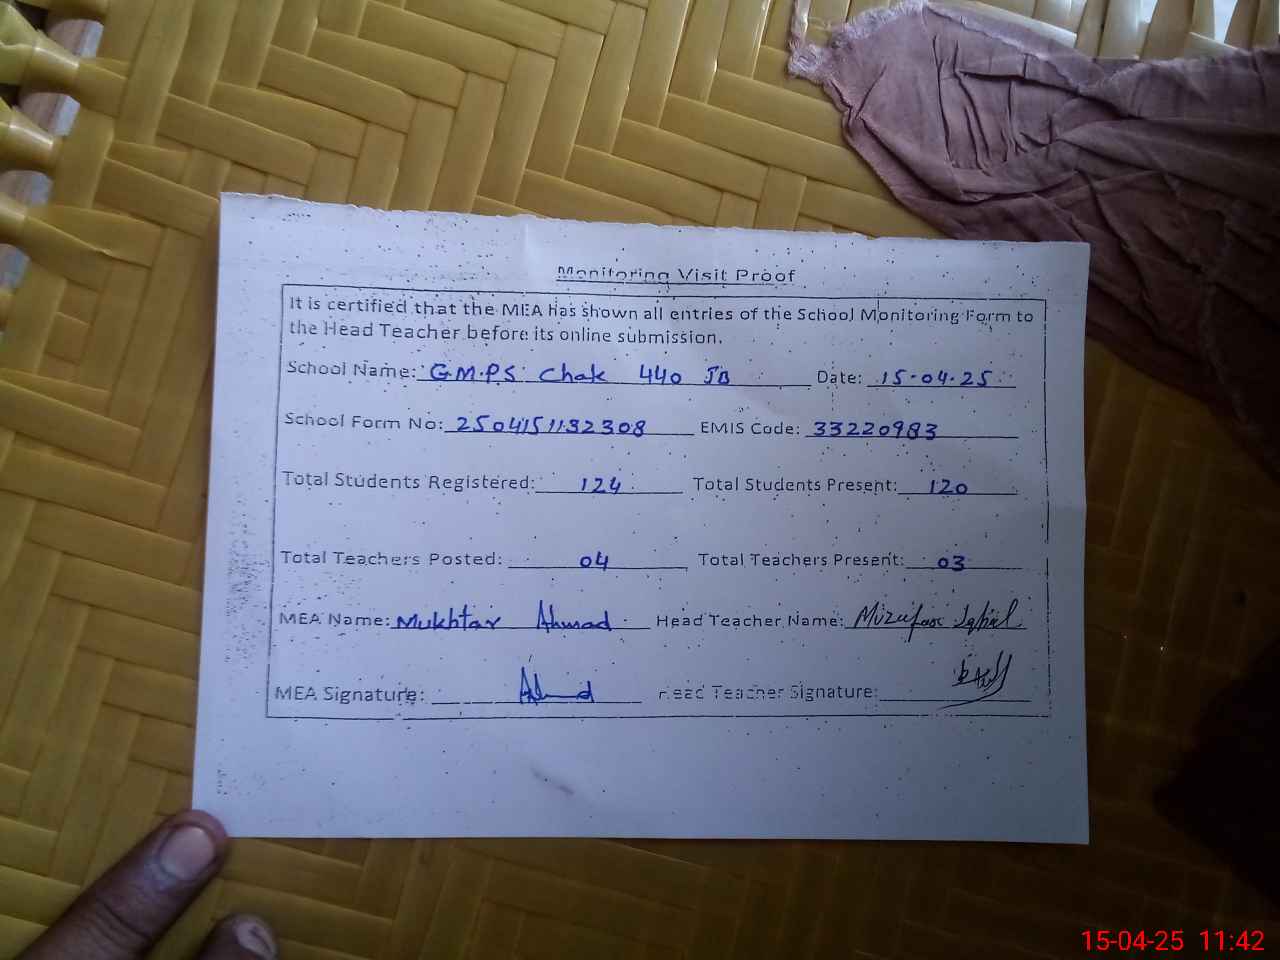 Monitoring Visit Proof
It is certified that the MEA has shown all entries of the School Monitoring Form to
the Head Teacher before its online submission.
School Name: G.M.P.S Chak 440 JB Date: 15-04-25
School Form No: 2504151132308 EMIS Code: 33220983
Total Students Registered: 124 Total Students Present: 120
Total Teachers Posted: 04 Total Teachers Present: 03
MEA Name: Mukhtar Ahmad Head Teacher Name: Iqbal
MEA Signature: Ahmad Head Teacher Signature:
15-04-25 11:42